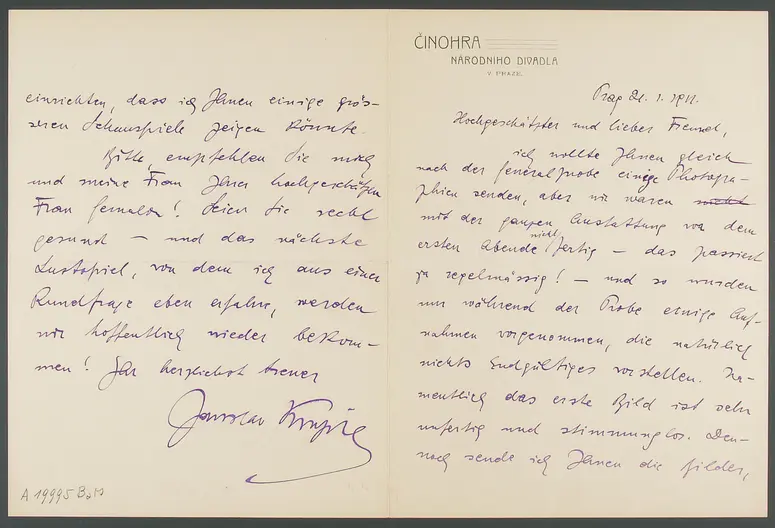 ČINOHRA
NÁRODNIHO DIVADLA
V PRAZE.
Prag 21. 1. 1911.
Hochgeschätzter und lieber Freund,
ich wollte Ihnen gleich
nach der Generalprobe einige Photogra-
phien senden, aber wir waren nicht
mit der ganzen Ausstattung vor dem
ersten Abende nicht fertig – das passiert
ja regelmässig! – und so wurden
nur während der Probe einige Auf-
nahmen vorgenommen, die natürlich
nichts Endgültiges vorstellen. Na-
mentlich das erste Bild ist sehr
unfertig und stimmungslos. Den-
noch sende ich Ihnen die Bilder,
einrichten, dass ich Ihnen einige grös-
seren Schauspiele zeigen könnte.
Bitte, empfehlen Sie mich
und meine Frau Ihrer hochgeschätzten
Frau Gemalin! Seien Sie recht
gesund – und das nächste
Lustspiel, von dem ich aus einer
Rundfrage eben erfahre, werden
wir hoffentlich wieder bekom-
men! Ihr herzlichst treuer
Jaroslav Kvapil
A 19995 BaM